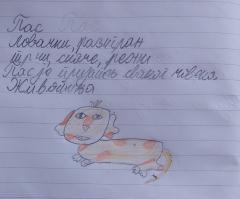 Пас
Ловачки, разигран
трчи, скаче, режи
Пас је пријатељ сваког човека
Животиња